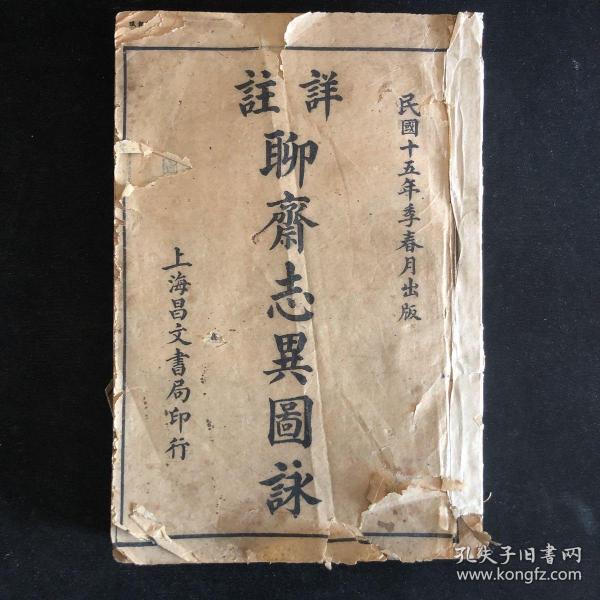 民國十五年季春月出版
詳註
聊齋志異圖詠
上海昌文書局印行
孔夫子旧书网
www.kongfz.com